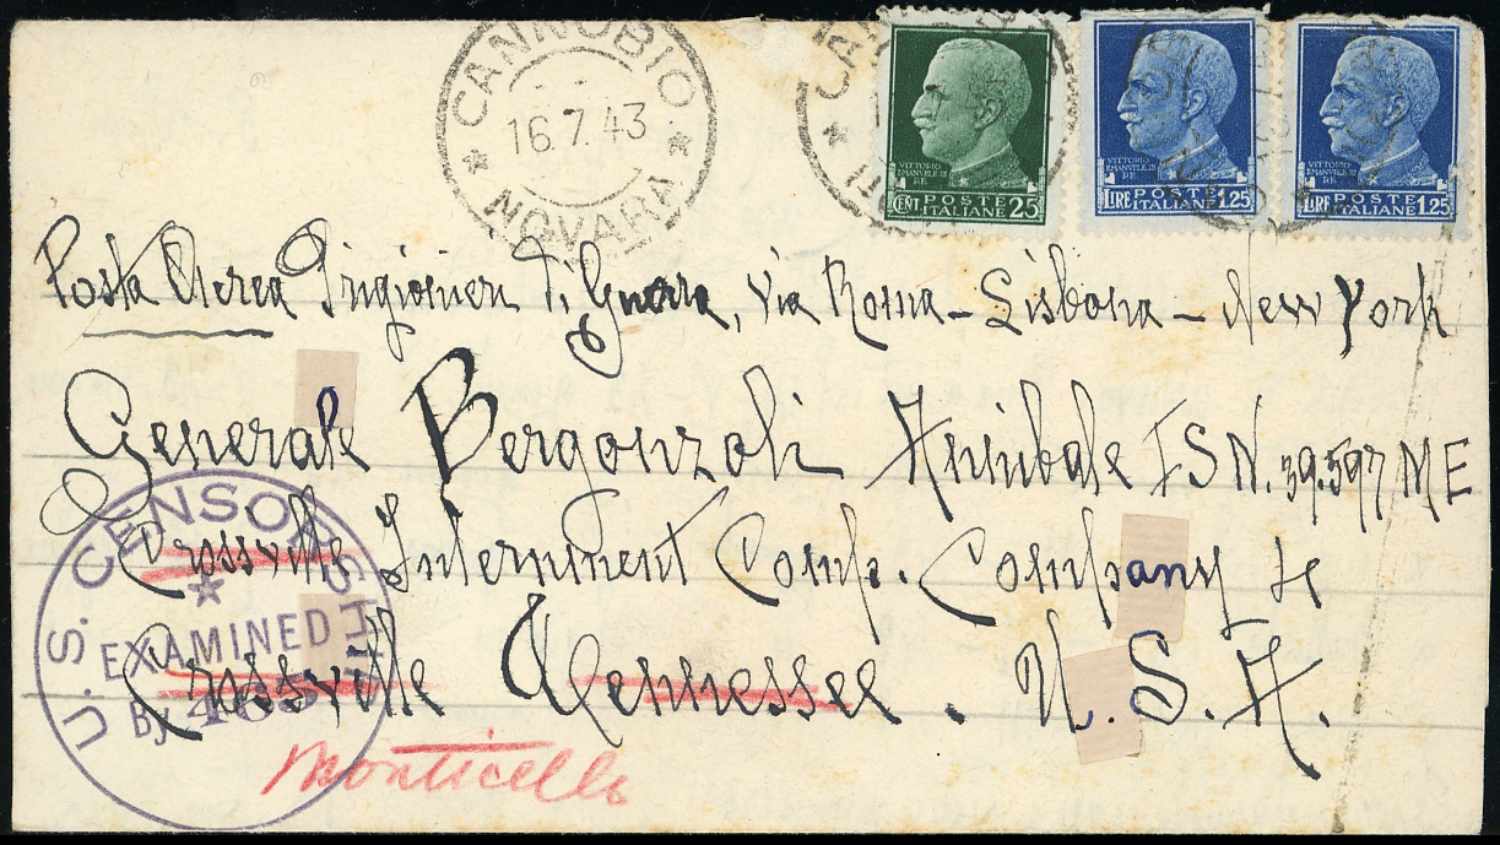 CANNOBIO
16.7.43
NOVARA
VITTORIO
EMANVELE III
RE
CENT. POSTE
ITALIANE 25
VITTORIO
EMANVELE III
RE
LIRE POSTE
ITALIANE 1.25
VITTORIO
EMANVELE III
RE
LIRE POSTE
ITALIANE 1.25
Posta Aerea Prigionieri di Guerra, via Roma - Lisbona - New York
Generale Bergonzoli Annibale ISN. 39.597 ME
Crossville Internment Comp. Company
Crossville Tennessee. U.S.A.
U.S. CENSORSHIP
EXAMINED
By
Monticello